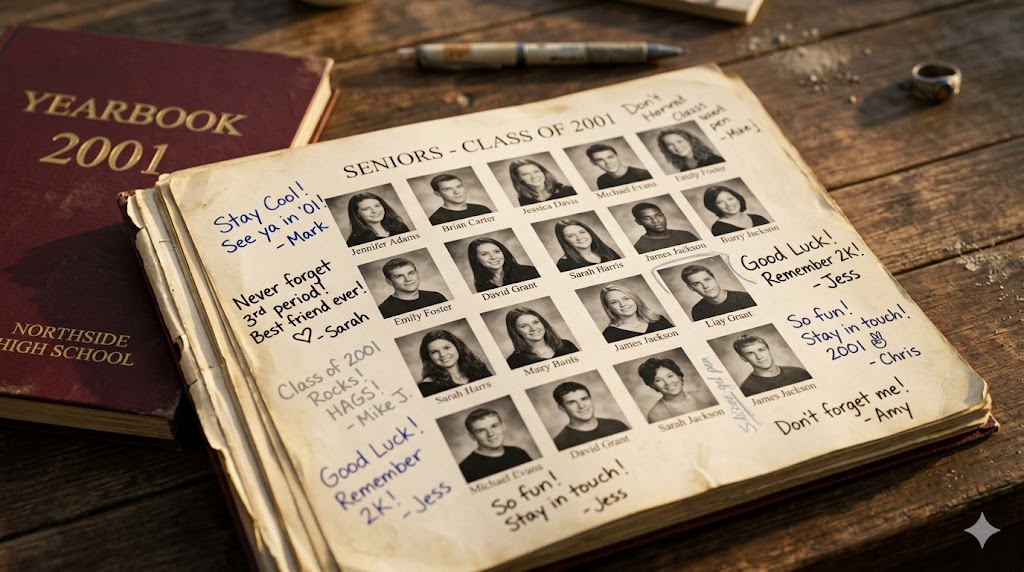 YEARBOOK
2001
NORTHSIDE
HIGH SCHOOL
SENIORS - CLASS OF 2001
Jennifer Adams
Brian Carter
Jessica Davis
Michael Evans
Emily Foster
Emily Foster
David Grant
Sarah Harris
James Jackson
Barry Jackson
Sarah Harrs
Matty Banfs
James Jackson
Liay Grant
Michael Evans
David Grant
Sarah Jackson
James Jackson
Stay Cool!
See ya in '01!
- Mark
Never forget
3rd period!
Best friend ever!
♡ - Sarah
Class of 2001
Rocks!
HAGS!
- Mike J.
Good Luck!
Remember
2K!
- Jess
So fun!
Stay in touch!
- Jess
Don't
Class
pen
Good Luck!
Remember 2K!
- Jess
So fun!
Stay in touch!
2001
- Chris
Don't forget me!
- Amy
gel pen